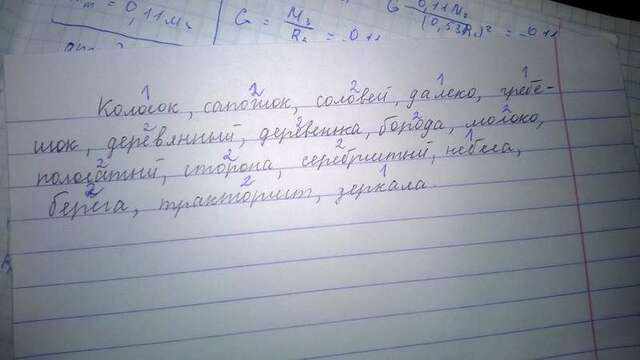 m = 0,11 м₂
G = M₃ / R₂ = 0 11
G 0,11 M₂ / (0,53R₂)² = 0 11
1 2 2 1 1
Колосок, сапожок, соловей, далеко, гребе-
2 2 2 2
шок, деревянный, деревенька, борода, молоко,
2 2 2 1
полосатный, сторона, серебристый, небеса,
2 2 1
берега, тракторист, зеркала.